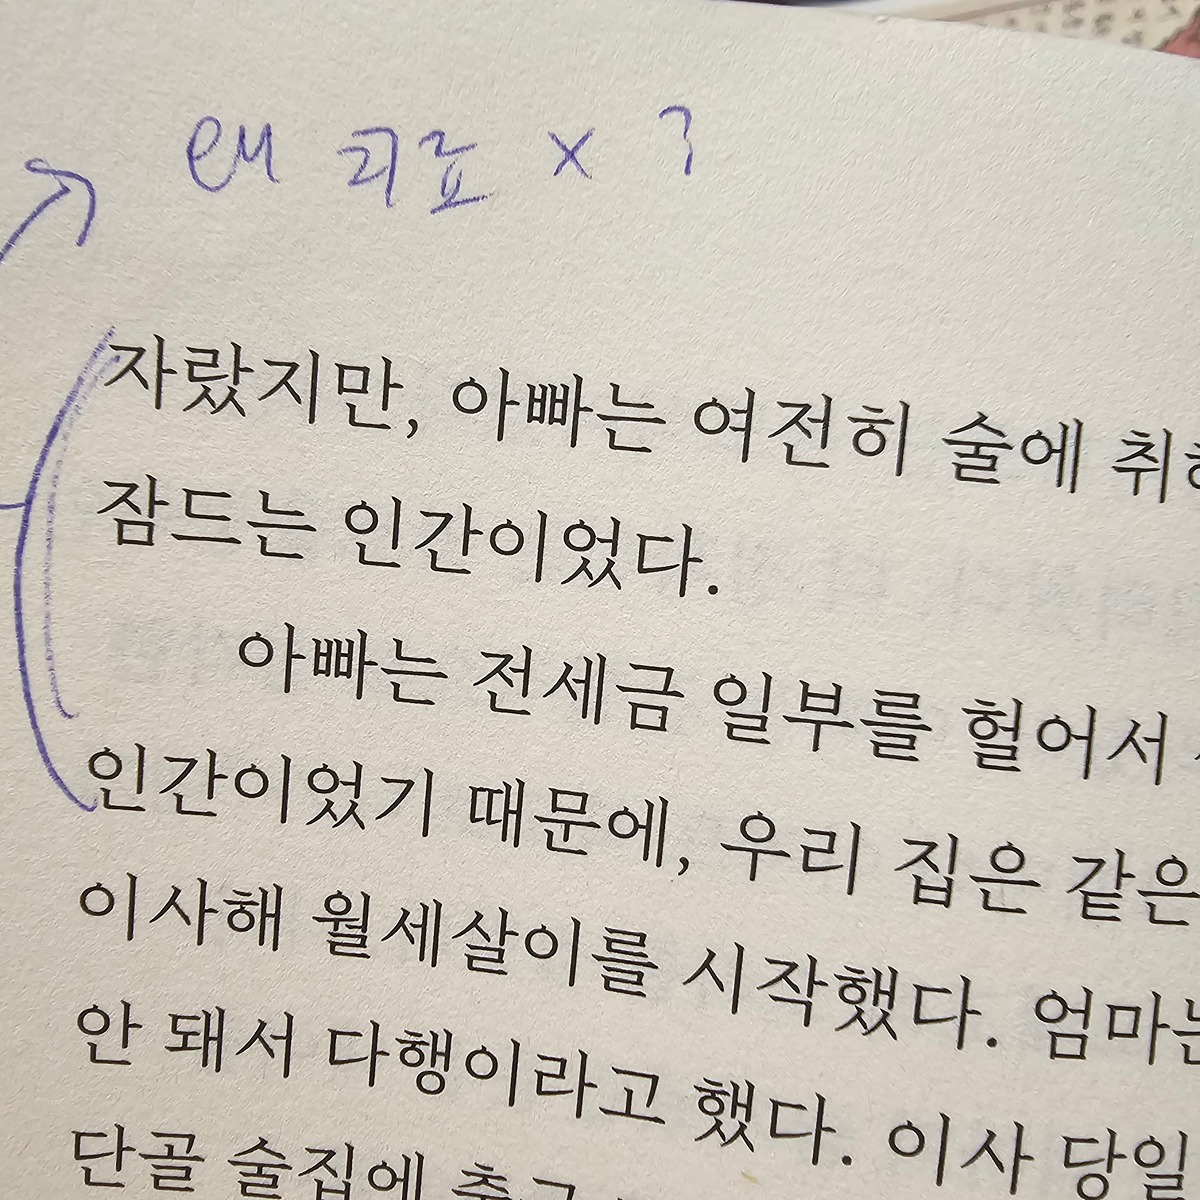 왜 치료 x ?
자랐지만, 아빠는 여전히 술에
잠드는 인간이었다.
아빠는 전세금 일부를 헐어서
인간이었기 때문에, 우리 집은 같은
이사해 월세살이를 시작했다. 엄마는
안 돼서 다행이라고 했다. 이사 당일
단골 술집에